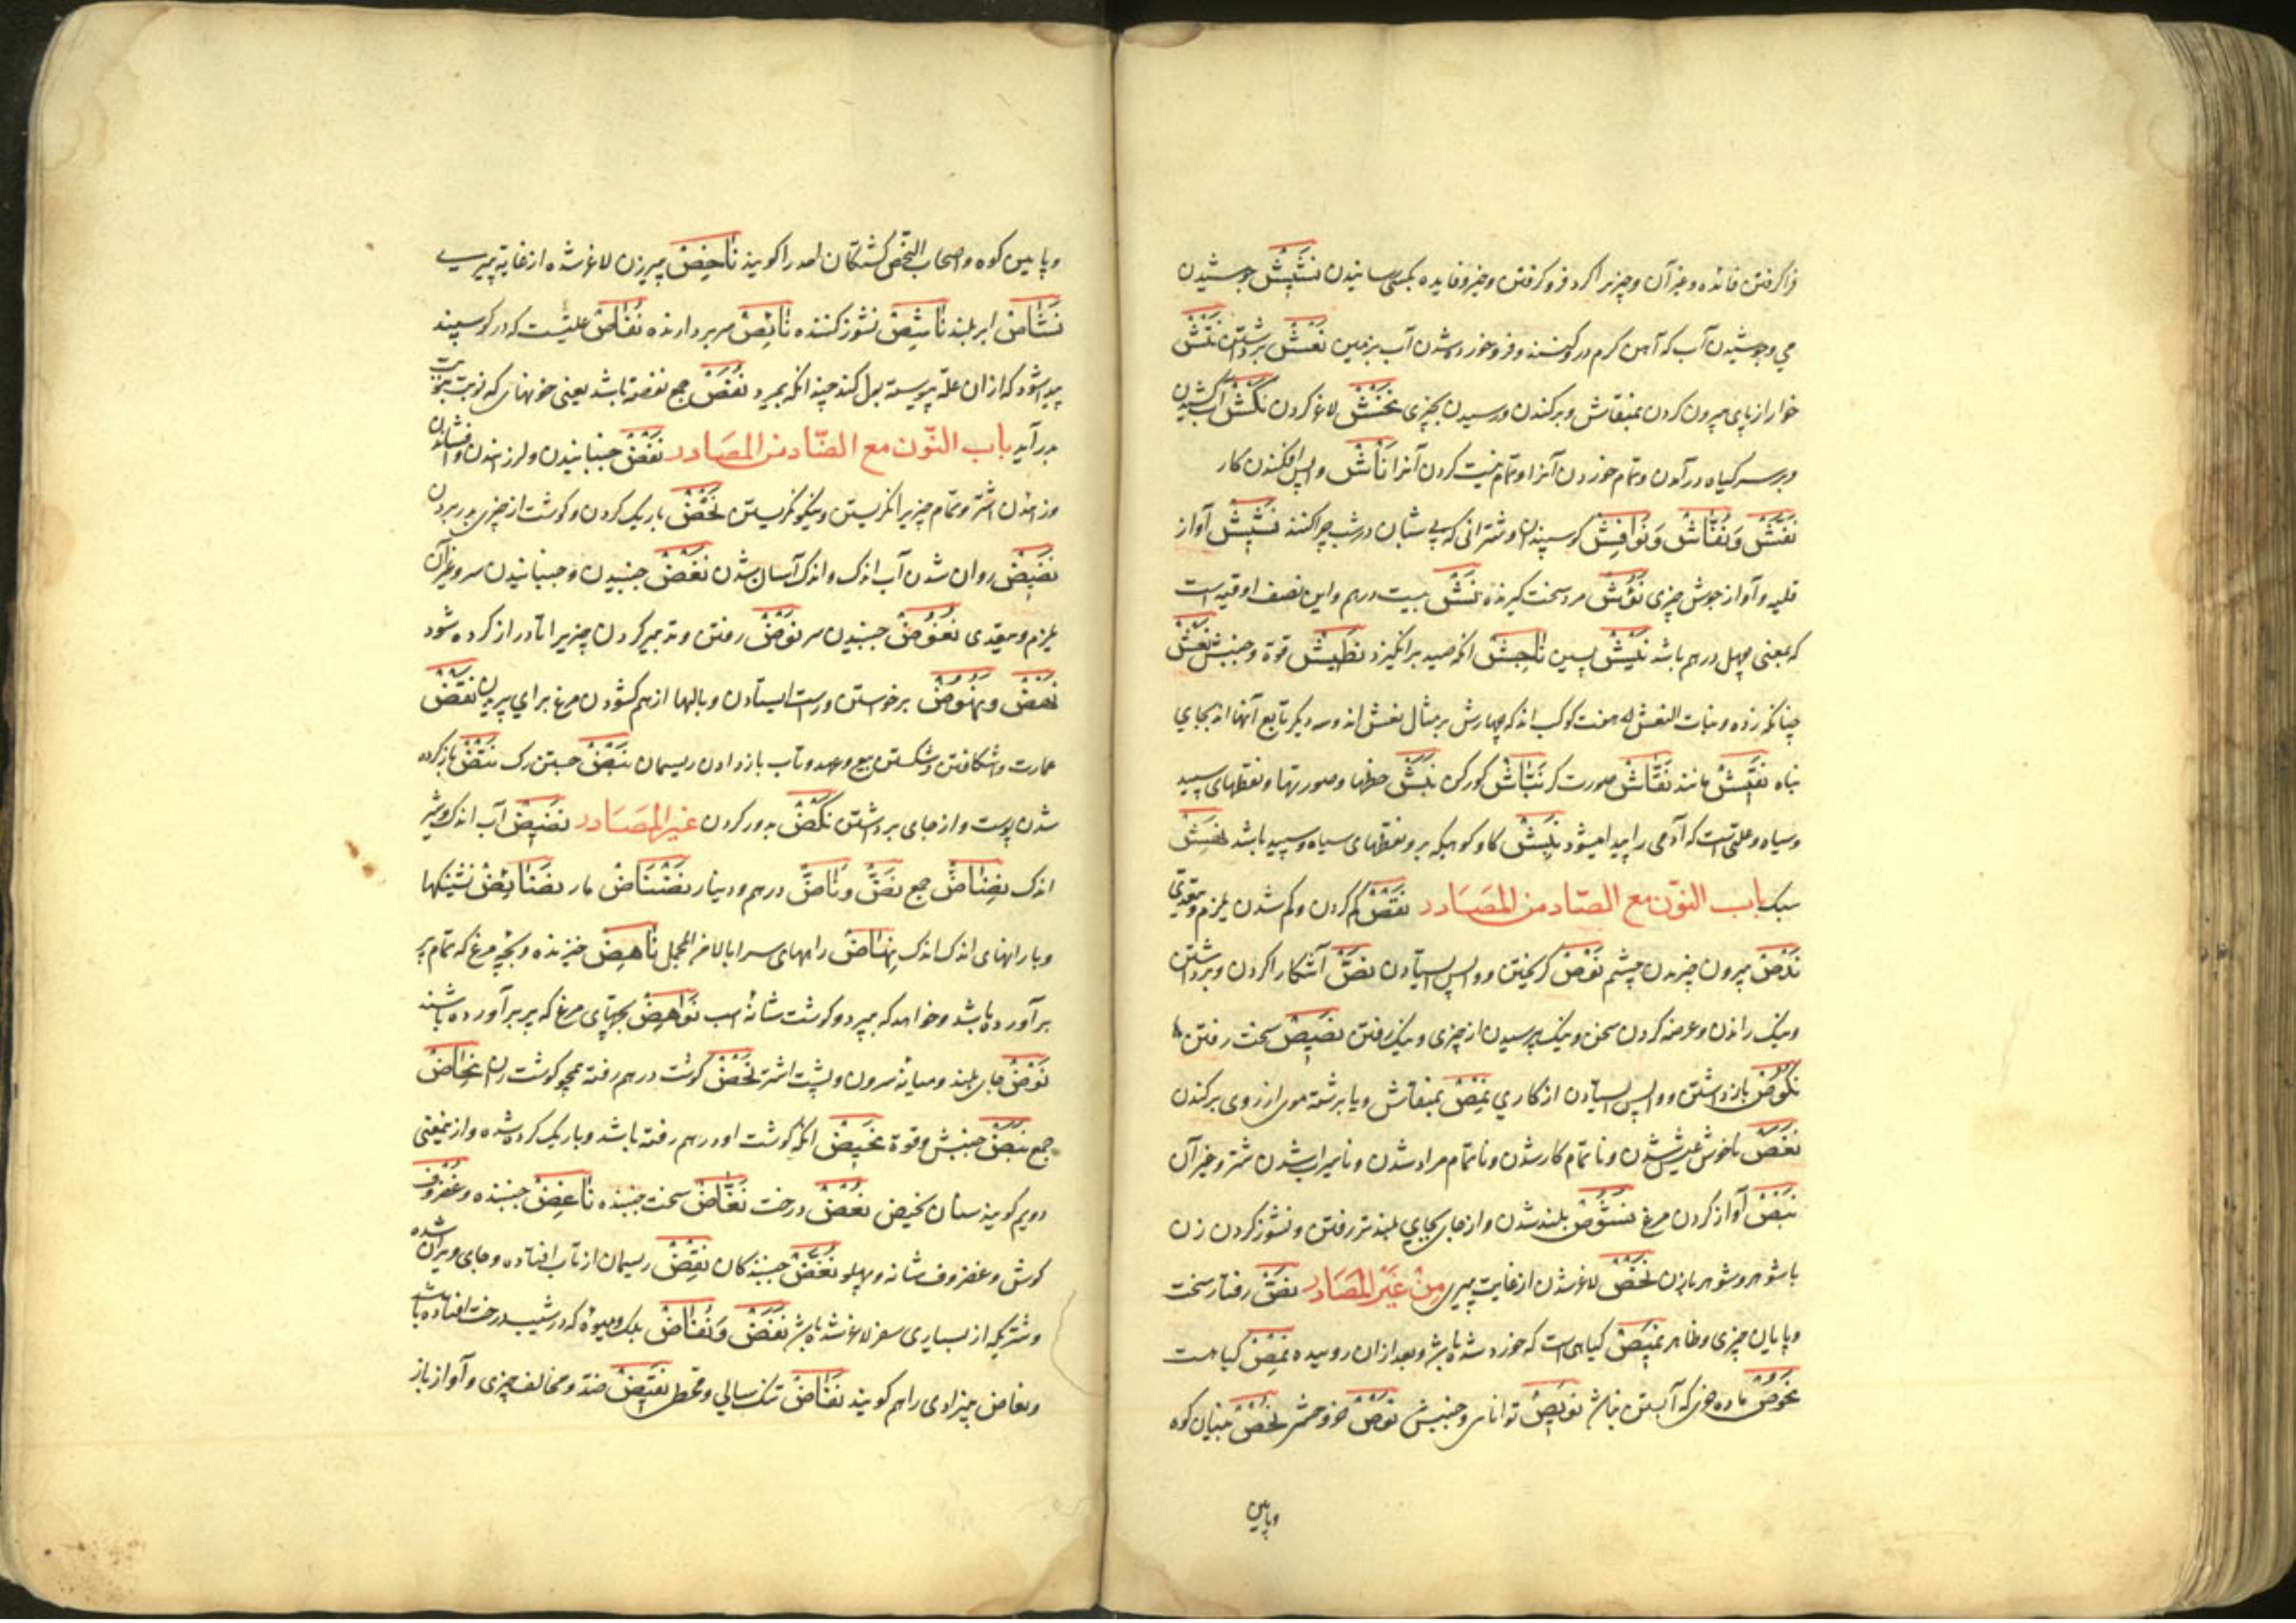 فرا گرفتن فائده و غیر آن و چیزیرا گرد فرو گرفتن و خیر و فایده بکسی رسانیدن نَشِیش جوشیدن
می و جوشیدن آب که آهن گرم درو کنند و فرو خورده شدن آب بزمین نَعْش برداشتن نَقْش
خار از پای بیرون کردن بمنقاش و برکندن و رسیدن بچیزی نَخْش لاغر کردن نَکْش آب کشیدن
و بر سر گیاه در آمدن و تمام خوردن آنرا و تمام نیست کردن آنرا نَأْش واپس افکندن کار
نَفَش وَ نُفَّاش وَ نَوافِش گوسپندان و شترانی که بی شبان در شب چرا کنند نَشِیش آواز
قلیه و آواز جوش چیزی نَؤُش مرد سخت گیرنده نَشّ بیست درهم و این نصف اوقیه است
که بمعنی چهل درهم باشد نَئِیش پسین نَاجِش انکه صید برانگیزد نَطِیش قوة و جنبش نَعْش
چنانکه زده و بنات النعش هفت کوکب اند که چهارش بر مثال نعش اند و سه دیگر تابع آنها اند بجای
نَقِیش مانند نَقَّاش صورت گر نَبَّاش گورکن نَمَش خطها و صورتها و نقطهای سپید
و سیاه و علتیست که آدمی را پیدا میشود نَمِش گاو کوهی که برو نقطهای سیاه و سپید باشد
سبک باب النّون مع الصّاد من المصَادر نَقْص کم کردن و کم شدن یلزم و یتعدّی
نَدْص بیرون خیزیدن چشم نَوْص گریختن و واپس ایستادن نَصّ آشکارا کردن و برداشتن
و نیک راندن و عرضه کردن سخن و نیک پرسیدن از چیزی و نیک رفتن نَصِیص سخت رفتن
نُکُوص باز داشتن و واپس ایستادن از کاری نَمْص بمنقاش و یا برشته موی از روی برکندن
نَغَص ناخوش عیش شدن و ناتمام کار شدن و ناتمام مراد شدن و ناسیراب شدن شتر و غیر آن
نَبْص آواز کردن مرغ نُشُوص بلند شدن و از جای بجای بلندتر رفتن و نشوز کردن زن
با شوهر و شوهر با زن نَخْص لاغر شدن از غایت پیری مِنْ غَیْرِ المَصَادر نَصّ رفتار سخت
و پایان چیزی و ظاهر نَمِیص گیاهی است که خورده شده باشد و بعد از آن روییده نَمِص گیاهست
نَحُوص ماده خری که آبستن نباشد نَوِیص توانای و جنبش نَوْص خر وحشی نُحْص بنیان کوه
وپایین
وپایین کوه و اصحاب النحص کشتگان احد را گویند نَاخِص پیر زن لاغر شده از غایة پیریی
نَشَاص ابر بلند نَاشِص نشوز کننده نَائِص سر بر دارنده نُفَاص علتیست که در گوسپند
پیدا شود که از آن علة پیوسته بول کند چندانکه بمیرد نُفَص جمع نفصة باشد یعنی خونهای که نوبت بنوبت
بدر آید باب النّون مع الضّاد من المصَادر نَفْض جنبانیدن و لرزاندن و افشاندن
و زاییدن شتر و تمام چیزیرا نگریستن و نیکو نگریستن نَحْض باریک کردن و گوشت از چیزی بدر بردن
نَضِیض روان شدن آب اندک و اندک آسان شدن نَغْض جنبیدن و جنبانیدن سر و غیر آن
یلزم و یتعدی نُغُوض جنبیدن سر نَوْض رفتن و تدبیر کردن چیزیرا تا دراز کرده شود
نَهْض و نُهُوض برخواستن و راست ایستادن و بالها از هم گشودن مرغ برای پریدن نَقْض
عمارت واشکافتن و شکستن بیع و عهد و تاب باز دادن ریسمان نَبْض جستن رگ نَتْض باز کرده
شدن پوست و از جای برداشتن نَکْض بدور کردن غیر المَصَادر نَضِیض آب اندک و شیر
اندک نِضَاض جمع نَضّ و نَاضّ درهم و دینار نَضْنَاض مار نَضَائِض تشنگیها
و بارانهای اندک اندک نِهَاض راههای سرابالا فر المجمل نَاهِض خیزنده و بچه مرغ که تمام پر
برآورده باشد و خواهد که بپرد و گوشت شانه اسب نَوَاهِض بچهای مرغ که پر برآورده باشند
نَوْض جای بلند و میانه سرون و پشت اشتر نَحْض گوشت درهم رفته همچو گوشت ران نِحَاض
جمع نَبْض جنبش و قوة نَحِیض انکه گوشت او درهم رفته باشد و باریک کرده شده و از نیمعنی
دویم گویند سنان نحیض نُغْض درخت نَغَّاض سخت جنبنده نَاغِض جنبنده و غضروف
گوش و غضروف شانه و پهلو نُغَّض جنبندگان نِقْض ریسمان از تاب افتاده و جای ویران شده
و شتریکه از بسیاری سفر لاغر شده باشد نَفَض وَ نُفَاض برگ و میوه که در شیب درخت افتاده باشد
و نفاض بیزادی را هم گویند نَفَاض تنک سالی و قحط نَقِیض ضد و مخالف چیزی و آواز باز